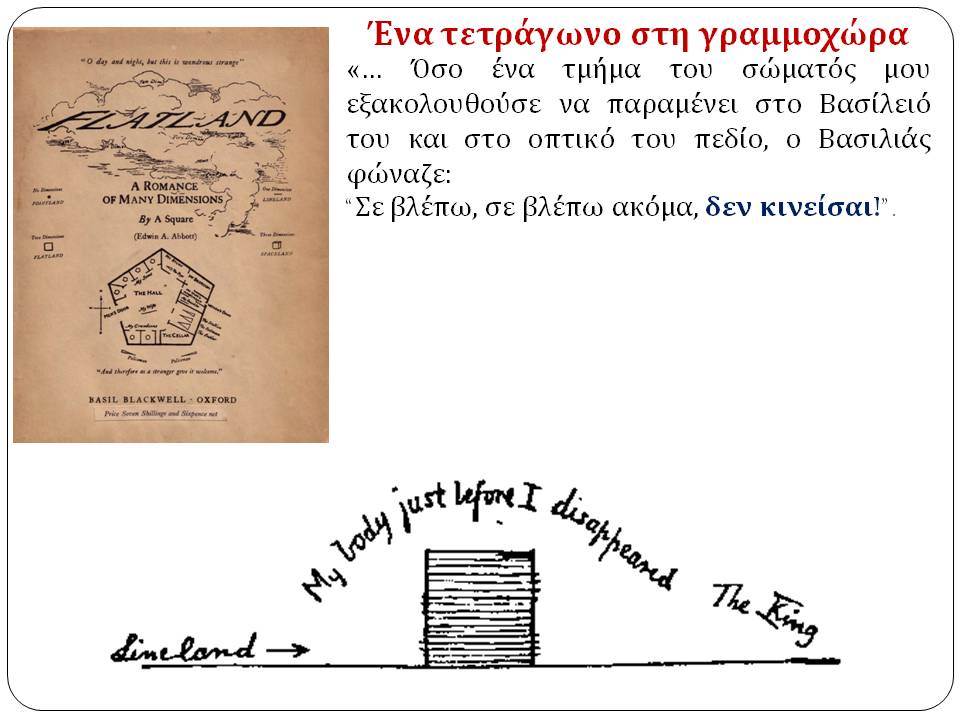 Ένα τετράγωνο στη γραμμοχώρα
«… Όσο ένα τμήμα του σώματός μου
εξακολουθούσε να παραμένει στο Βασίλειό
του και στο οπτικό του πεδίο, ο Βασιλιάς
φώναζε:
“Σε βλέπω, σε βλέπω ακόμα, δεν κινείσαι!”.
"O day and night, but this is wondrous strange"
FLATLAND
No Dimensions
POINTLAND
One Dimension
LINELAND
A ROMANCE
OF MANY DIMENSIONS
By A Square
(Edwin A. Abbott)
Two Dimensions
FLATLAND
Three Dimensions
SPACELAND
THE HALL
MEN'S DOOR
My Wife
THE CELLAR
Policeman
Policeman
"And therefore as a stranger give it welcome."
BASIL BLACKWELL · OXFORD
Price Seven Shillings and Sixpence net
My body just before I disappeared
The King
Lineland